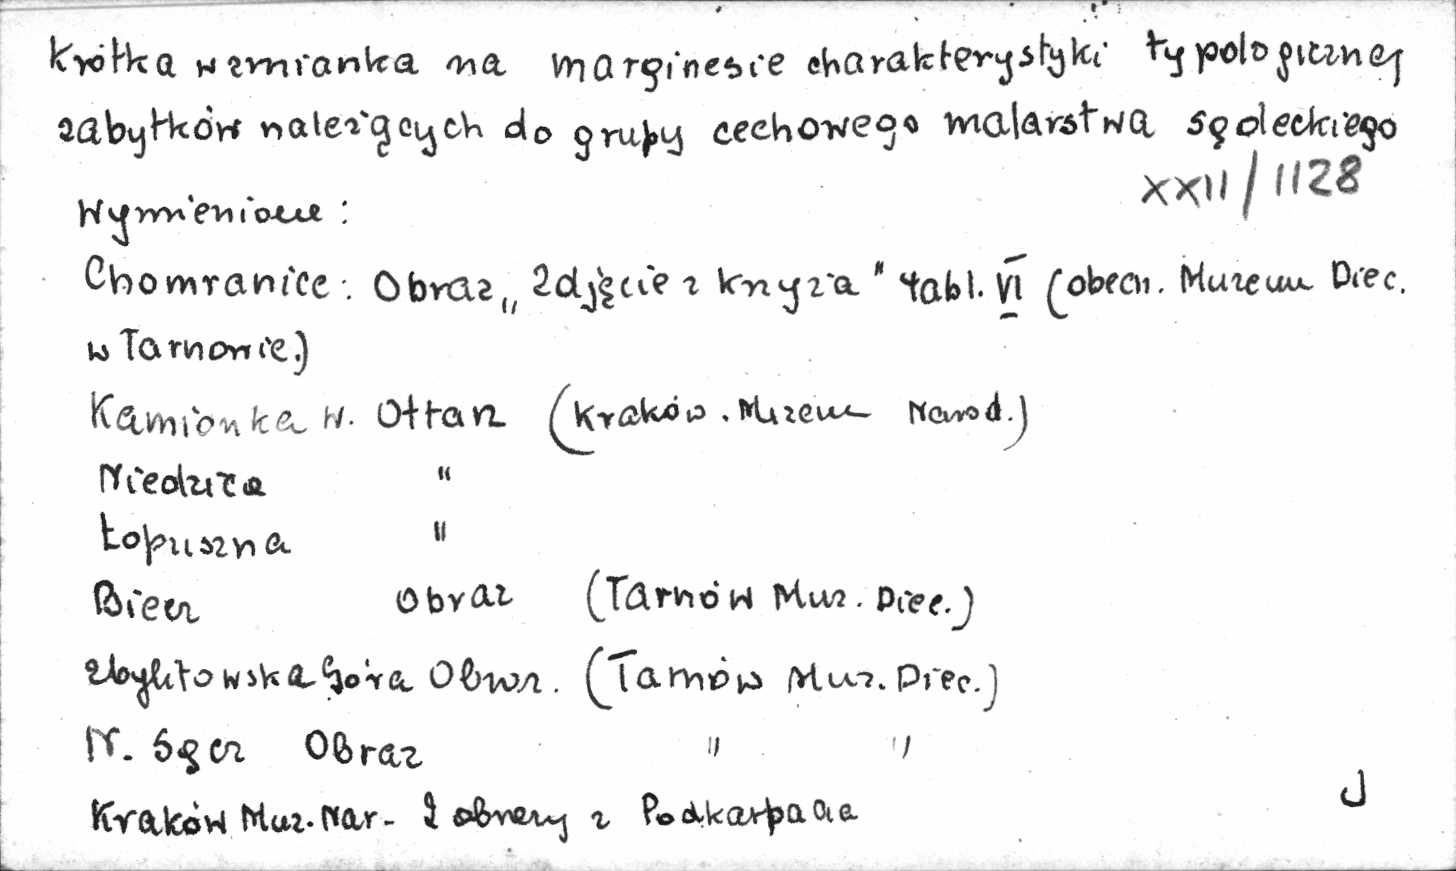 Krótka wzmianka na marginesie charakterystyki typologicznej
zabytków należących do grupy cechowego malarstwa sądeckiego
XXII/1128
Wymienione:
Chomranice: Obraz „Zdjęcie z krzyża" tabl. VI (obecn. Muzeum Diec.
w Tarnowie.)
Kamionka W. Ołtarz (Kraków. Muzeum Narod.)
Niedzica "
Łopuszna "
Biecz Obraz (Tarnów Muz. Diec.)
Zbylitowska Góra Obraz. (Tarnów Muz. Diec.)
N. Sącz Obraz " "
Kraków Muz. Nar- 2 obrazy z Podkarpacia
J